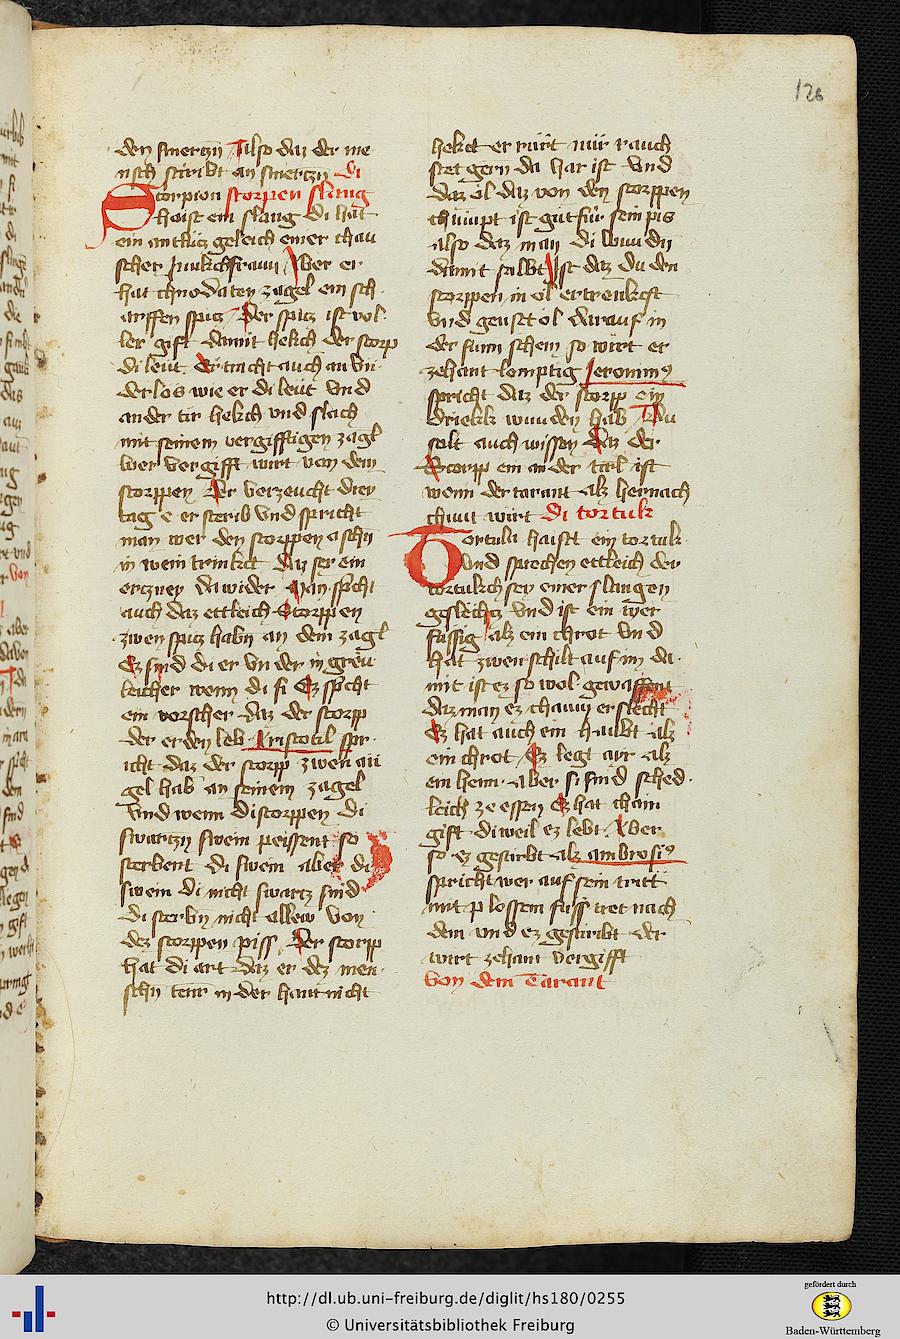 126
den smerczn Also daz der me
nsch stirbt an smerczn Di
Scorpion storpen slang
haist ein slang di hat
ein antlicz geleich einer chau
scher junkchfrawn Aber er
hat chnodaten zagel ein sch
arffen spicz Der spicz ist vol
ler gift damit hekch der scorp
di leut Er tracht auch an vn
derlos wie er di leut vnd
ander tir hekch vnd slach
mit seinem vergifftigen zagl
wer vergifft wirt von dem
storppen Der verzeucht drey
tag e er sterib vnd spricht
man wer den storppen aschn
in wein trinkct Daz ser ein
erczney dawider Man spicht
auch daz ettleich Storppen
zwen spicz habn an dem zagl
Ez sind di er vnder in greu
leicher wenn di si Ez spicht
ein vorscher daz der storpp
der erden leb Aristotil spr
icht daz der storpp zwen an
gel hab an seinem zagel
vnd wenn di storppen di
swarczn swein peissent so
sterbent di swein aber di
swein di nicht swarcz sind
di sterbn nicht allew von
dez storppen piss Der storpp
hat di art daz er dez men
schn tenr in der hant nicht
hekct er rürt nür rauch
stet gern da har ist vnd
daz öl daz von den storppen
chumpt ist gut für sein pis
also daz man di wundn
damit salbt Ist daz du den
storppen in öl ertrenkcst
vnd geust öl darauf in
der sunn schein so wirt er
zehant lemptig Jeronimus
spricht daz der storpp ein
driekk wunden hab Du
solt auch wissen Daz der
Scorpp ein ander tirl ist
wenn der tarant alz hernach
chunt wirt Di tortuk
Tortulu haist ein tortuk
vnd sprechen ettleich der
tortukch sey einer slangen
geslecht vnd ist ein vier
fussig alz ein chrot vnd
hat zwen schilt auf im da
mit ist ez so wol gewaffent
daz man ez chaum erslecht
Ez hat auch ein haubt alz
ein chrot Ez legt ayr alz
ein henn Aber si sind sched
leich ze essen Ez hat chain
gift diweil ez lebt Aber
so ez gestirbt alz ambrosius
spricht wer auf sein tritt
mit plossem fuss tret nach
dem vnd ez gestirbt der
wirt zehant vergifft
Von dem Tarant
http://dl.ub.uni-freiburg.de/diglit/hs180/0255
© Universitätsbibliothek Freiburg
gefördert durch
Baden-Württemberg